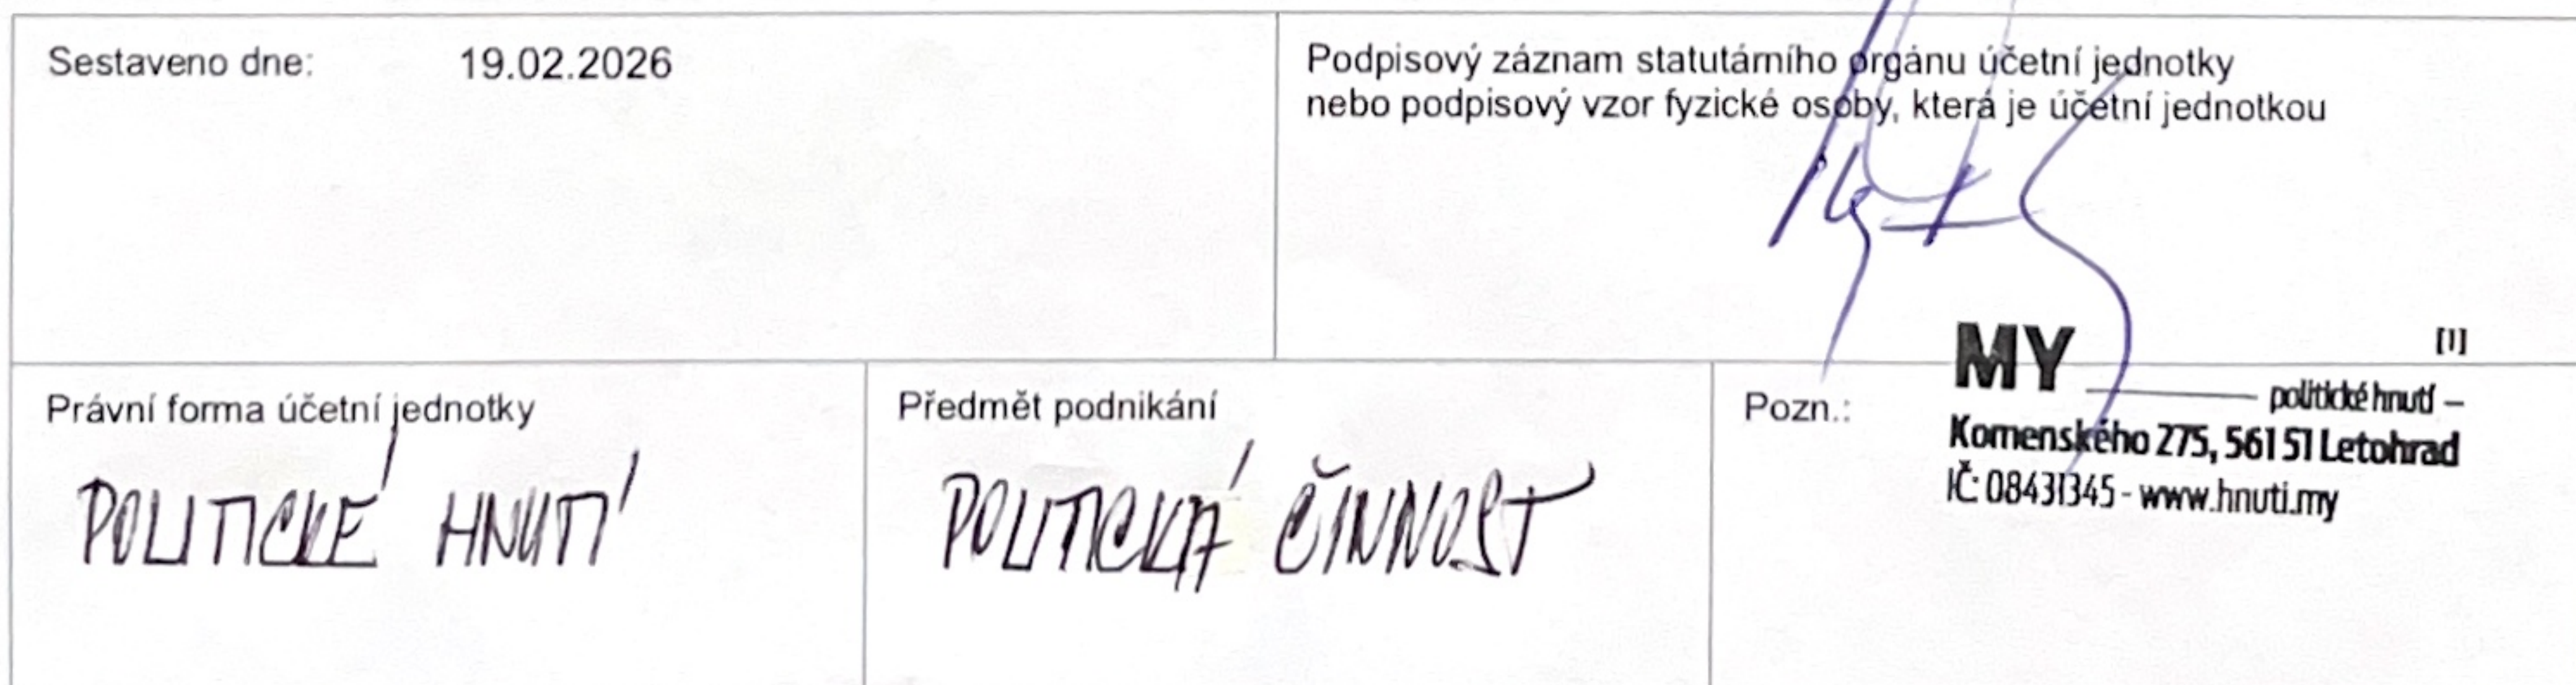 Sestaveno dne: 19.02.2026
Podpisový záznam statutárního orgánu účetní jednotky
nebo podpisový vzor fyzické osoby, která je účetní jednotkou
Právní forma účetní jednotky
POLITICKÉ HNUTÍ
Předmět podnikání
POLITICKÁ ČINNOST
Pozn.:
[1]
MY politické hnutí –
Komenského 275, 561 51 Letohrad
IČ: 08431345 - www.hnuti.my